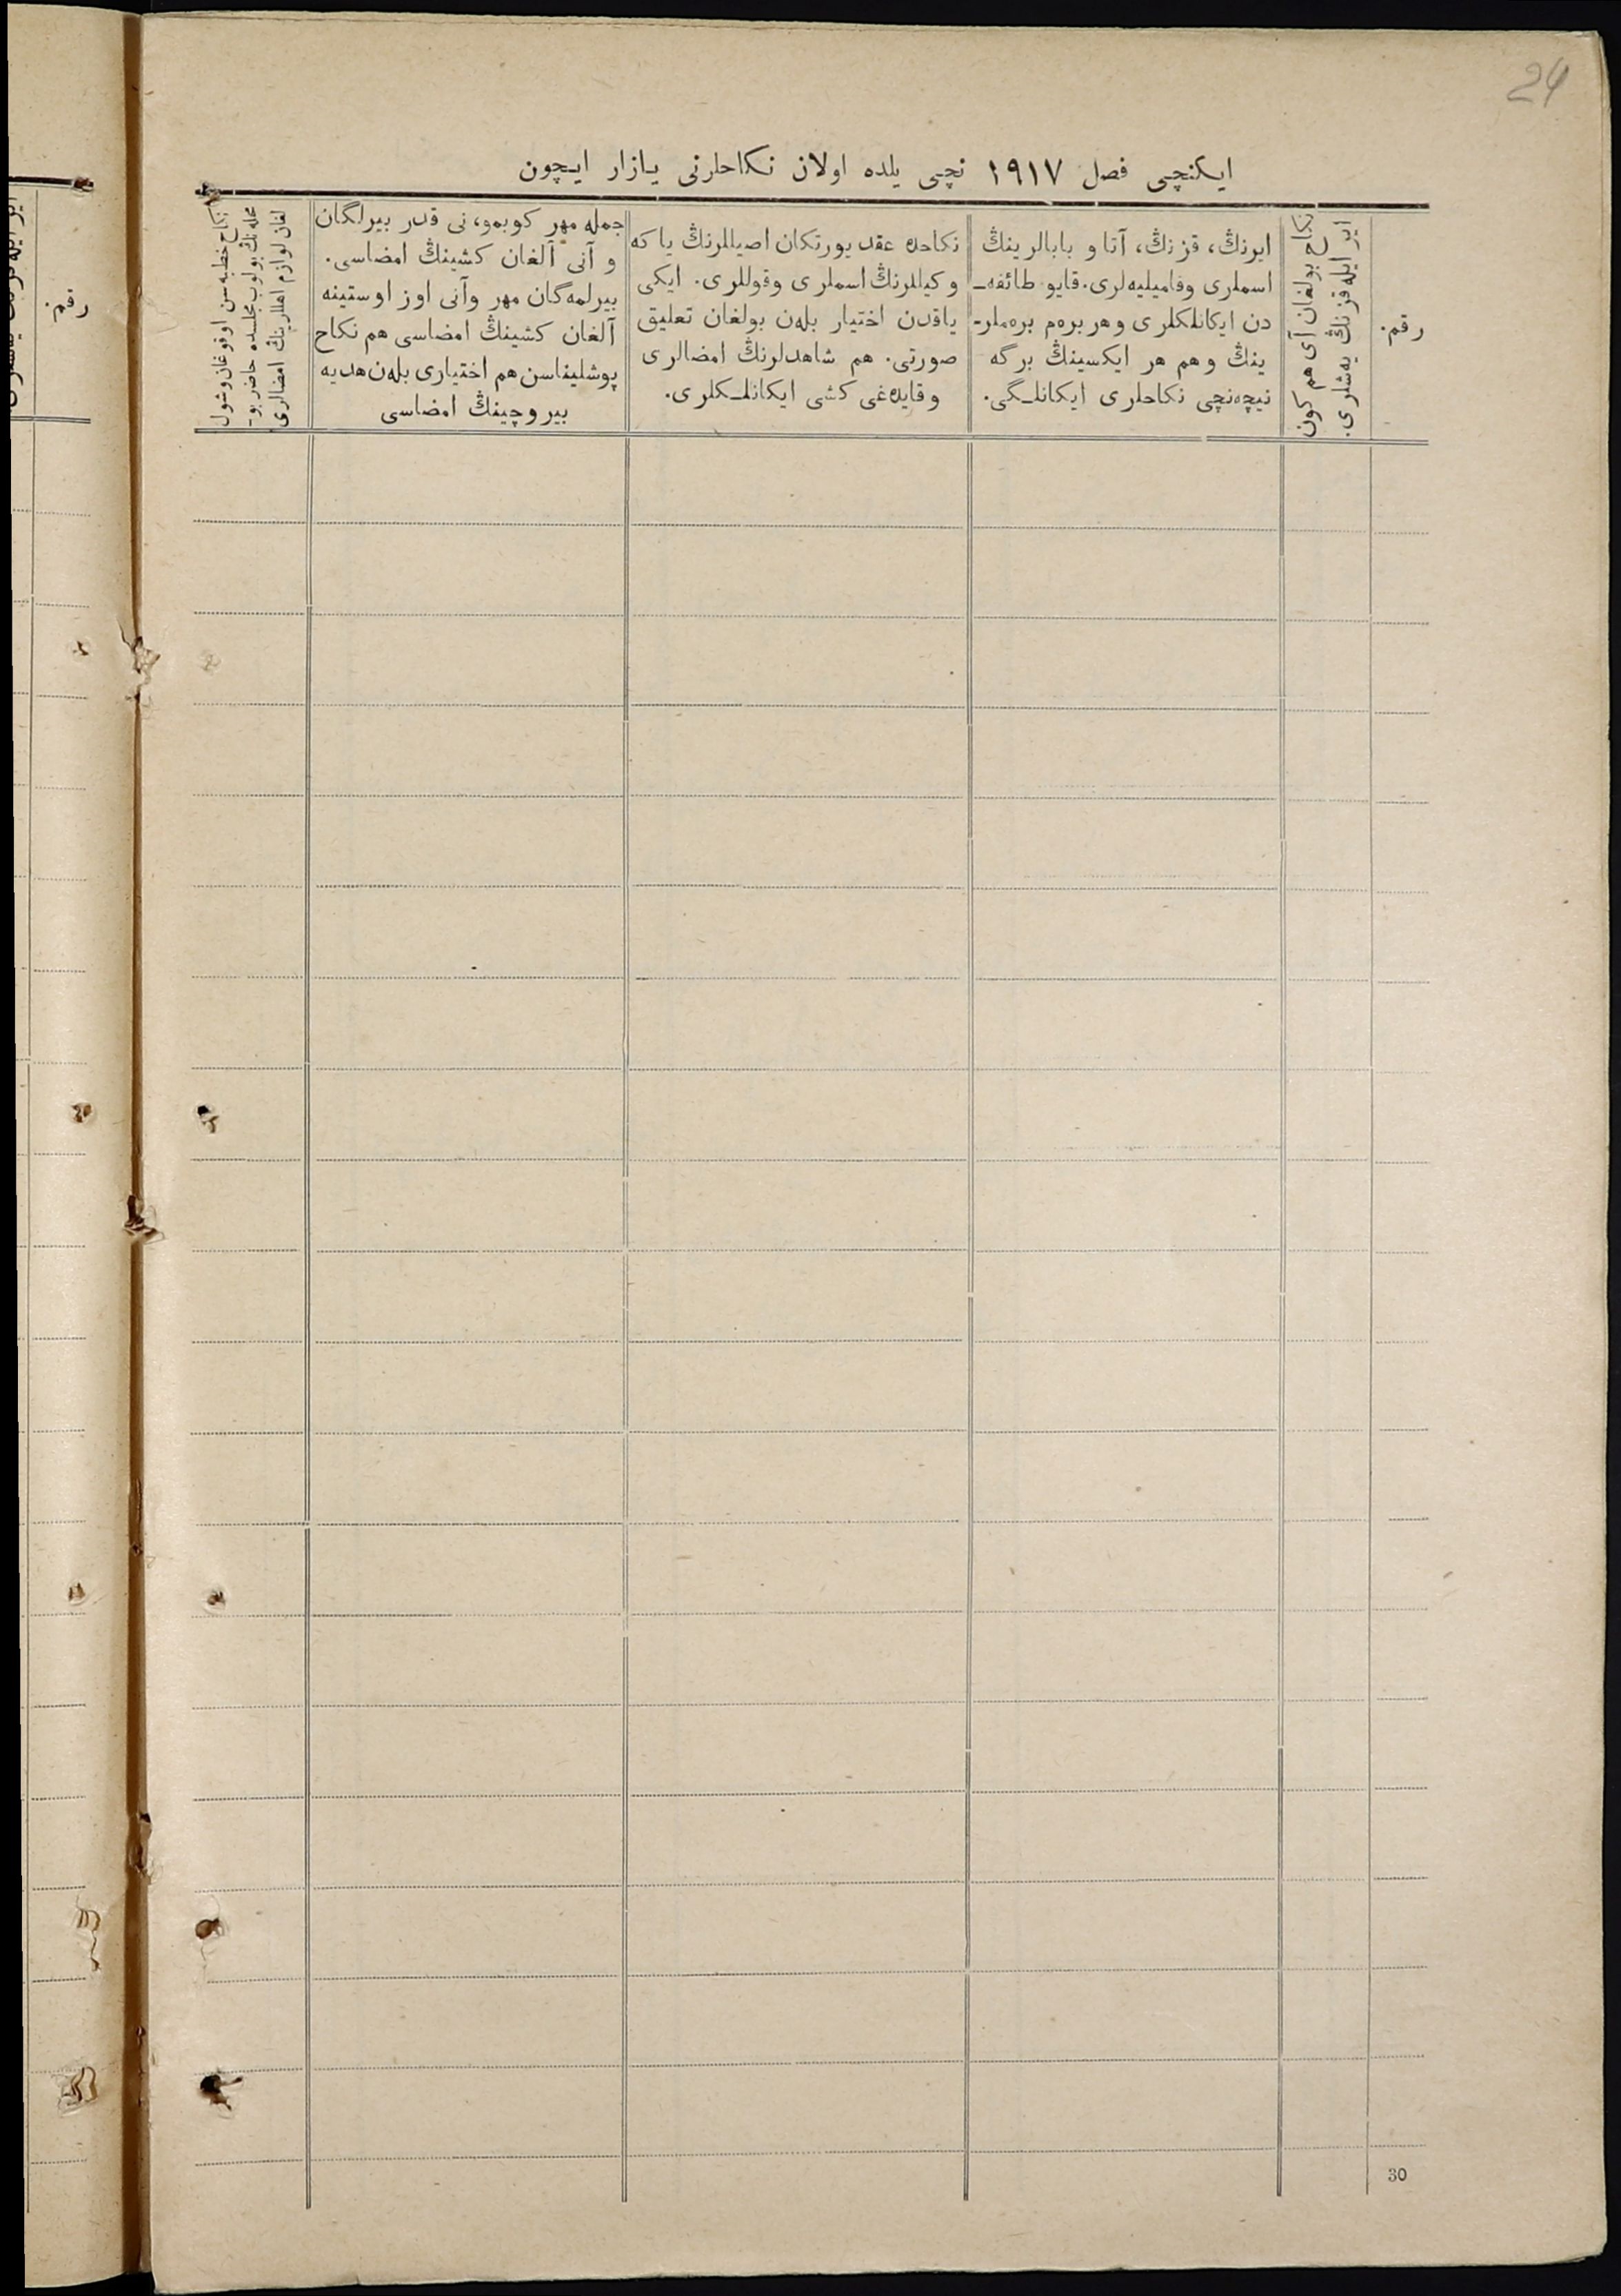 24
ایکنچی فصل ۱۹۱۷ نچی یلده اولان نکاحلرنی یازار ایچون
رقم.
نکاح بولغان آی هم کون
ایر ایله قزنڭ یه‌شلری.
ایرنڭ، قزنڭ، آتا و بابالرینڭ
اسملری وفامیلیه‌لری. قایو طائفه‌ـ
دن ایکانلکلری و هر بره‌م بره‌ملرـ
ینڭ و هم هر ایکسینڭ برگه
نیچه‌نچی نکاحلری ایکانلـگی.
نکاحده عقد یورتکان اصیللرنڭ یا که
وکیللرنڭ اسملری وقوللری. ایکی
یاقدن اختیار بله‌ن بولغان تعلیق
صورتی. هم شاهدلرنڭ امضالری
و قایده‌غی کشی ایکانلـکلری.
جمله مهر کوبمو، نی قدر بیرلگان
و آنی آلغان کشینڭ امضاسی.
بیرلمه‌گان مهر وآنی اوز اوستینه
آلغان کشینڭ امضاسی هم نکاح
پوشلیناسن هم اختیاری بله‌ن هدیه
بیروچینڭ امضاسی
نکاح خطبه‌سن اوقوغان وشول
محله‌نڭ بولوب مجلسده حاضر بوـ
لغان لوازم اهللارینڭ امضالری
رقم.
30